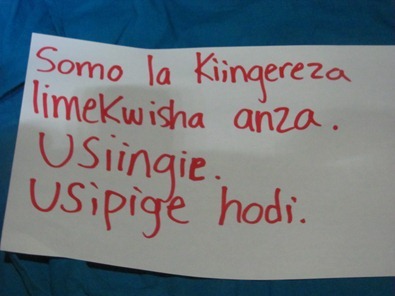 Somo la Kiingereza
limekwisha anza.
Usiingie.
Usipige hodi.